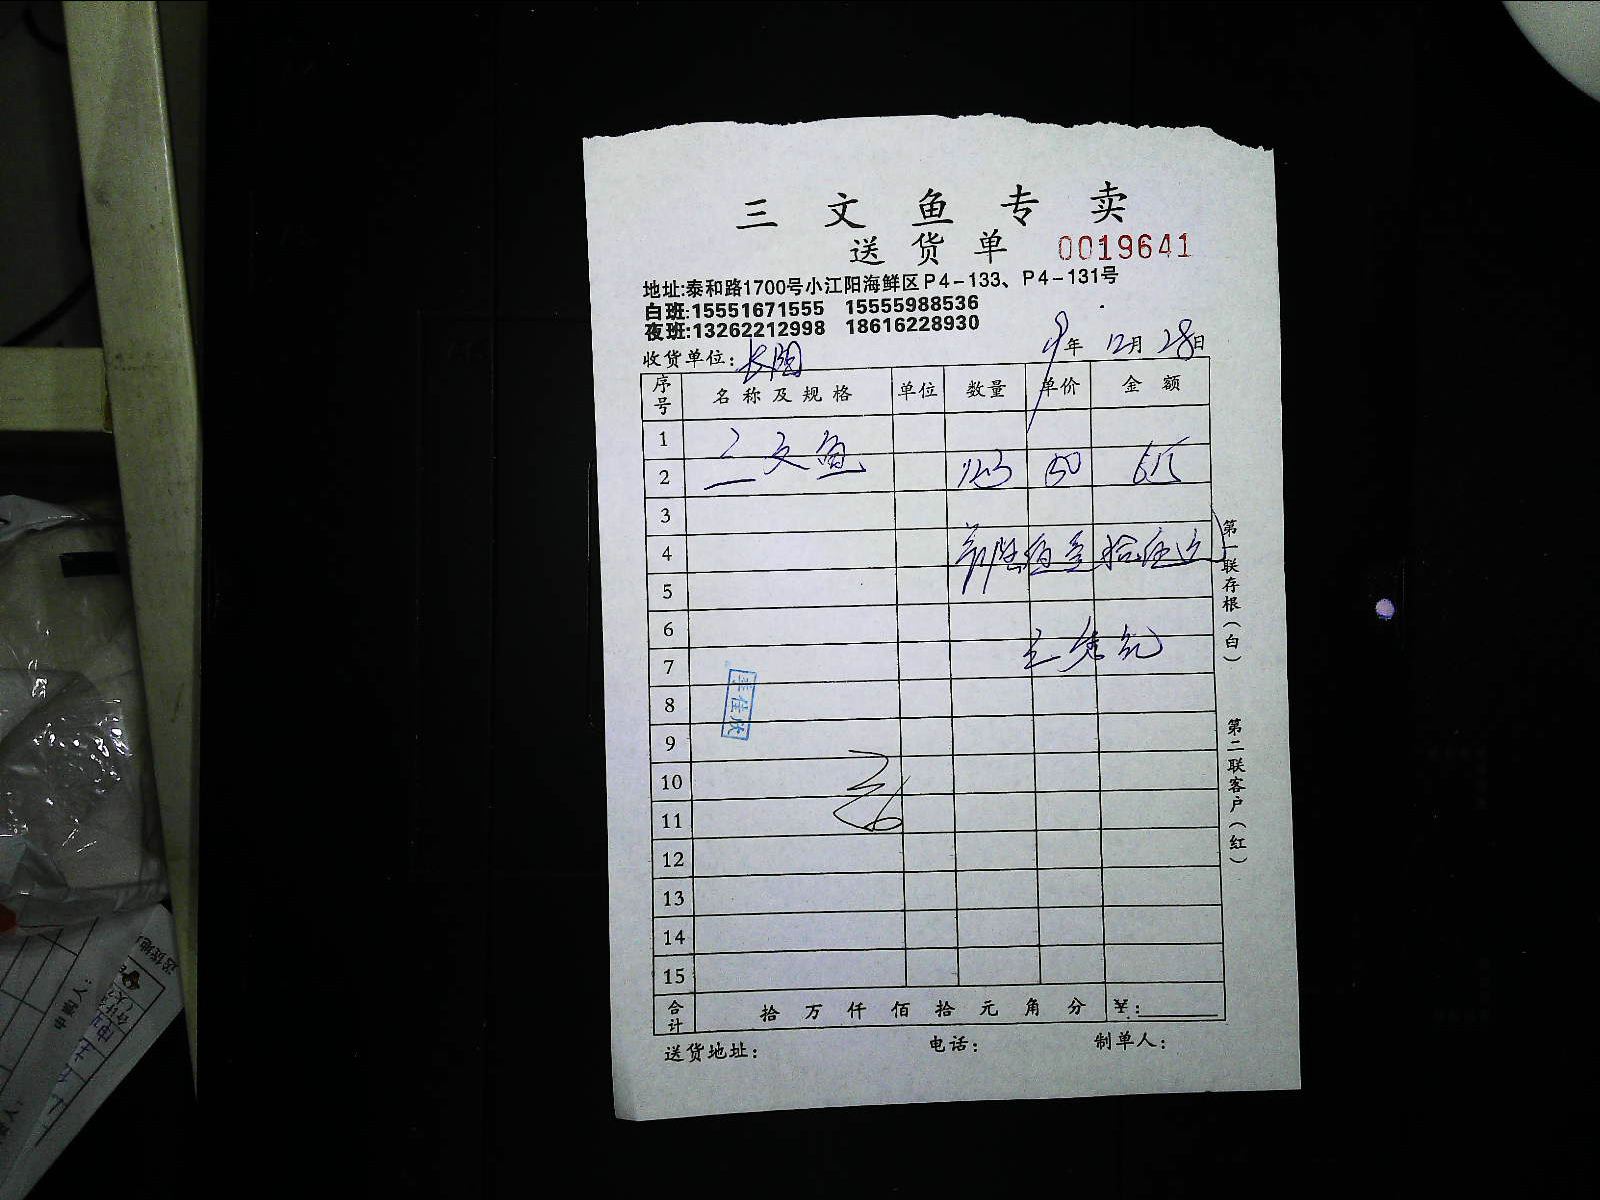 三文鱼专卖
送货单 0019641
地址:泰和路1700号小江阳海鲜区P4-133、P4-131号
白班:15551671555 15555988536
夜班:13262212998 18616228930
收货单位: 年 12月 28日
序号 名称及规格 单位 数量 单价 金额
1
三文鱼
2 12.3 50 615
3
4
5
6
7
8
9
10
11
12
13
14
15
合计 拾 万 仟 佰 拾 元 角 分 ¥:
送货地址: 电话: 制单人:
第一联存根(白)
第二联客户(红)